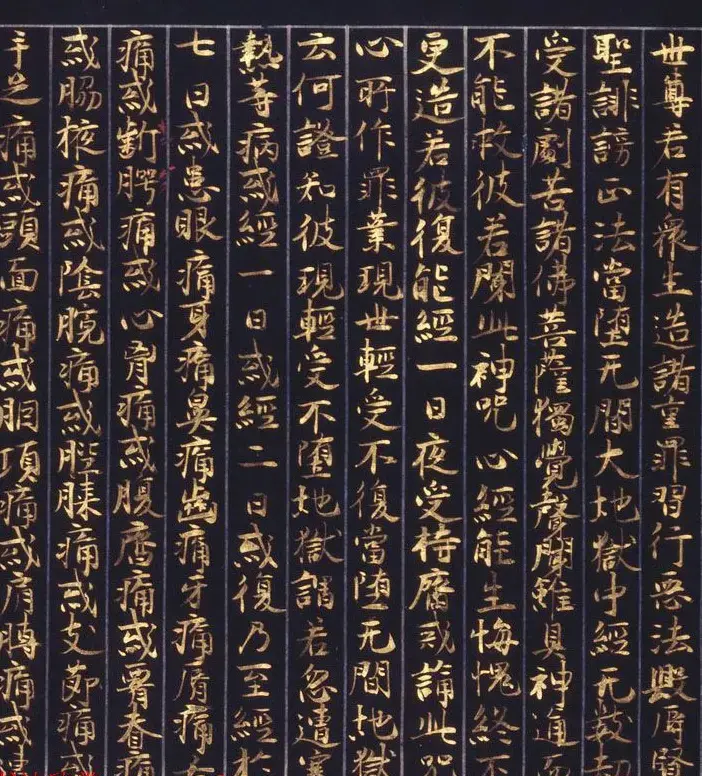 世尊若有衆生造諸重罪習行惡法毀辱賢
聖誹謗正法當堕无間大地獄中經无數劫
受諸劇苦諸佛菩薩獨覺聲聞雖具神通而
不能救彼若聞此神咒心經能生悔愧終不
更造若彼復能經一日夜受持齋戒誦此咒
心所作罪業現世輕受不復當堕无間地獄
云何證知彼現輕受不墮地獄謂若忽遭寒
熱等病或經一日或經二日或復乃至經於
七日或患眼痛身痛鼻痛齒痛牙痛脣痛舌
痛或斷腭痛或心胷痛或腹齊痛或脊痛
或脇核痛或陰脫痛或髀膝痛或支節痛或
手足痛或頭面痛或胭項痛或肩膊痛或